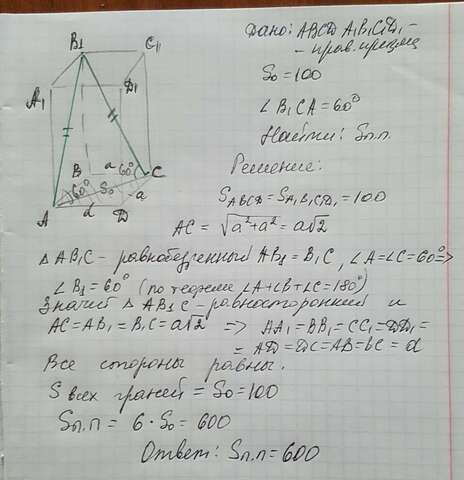 Дано: ABCD A₁B₁C₁D₁ –
– прав. призма
S₀ = 100
∠ B₁CA = 60°
Найти: Sп.п.
Решение:
S ABCD = S A₁B₁C₁D₁ = 100
AC = √a²+a² = a√2
△ AB₁C – равнобедренный AB₁ = B₁C, ∠A = ∠C = 60° ⇒
∠ B₁ = 60° (по теореме ∠A + ∠B + ∠C = 180°)
Значит △ AB₁C – равносторонний и
AC = AB₁ = B₁C = a√2 ⇒ AA₁ = BB₁ = CC₁ = DD₁ =
= AD = DC = AB = BC = a
Все стороны равны.
S всех граней = S₀ = 100
Sп.п = 6 · S₀ = 600
Ответ: Sп.п = 600
B₁
C₁
A₁
D₁
B
a
60°
C
60°
S₀
a
A
a
D